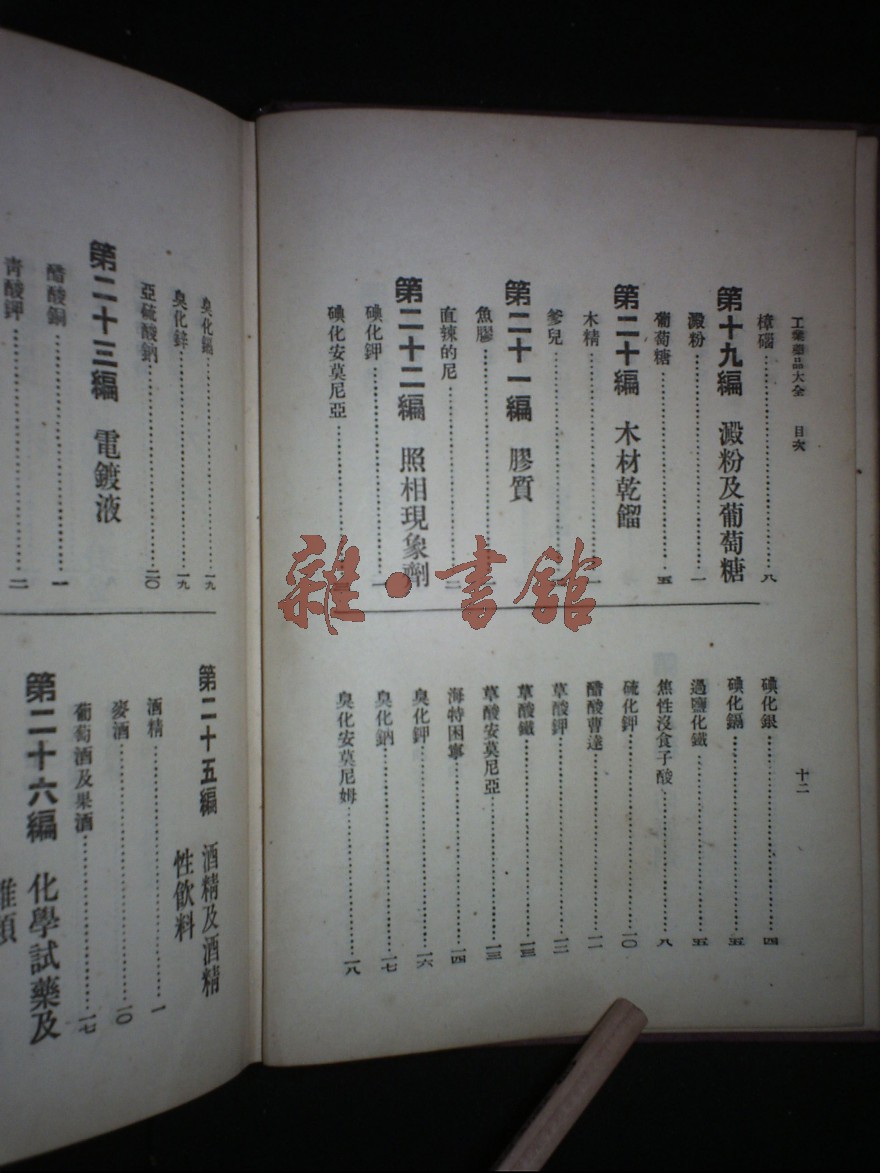 工業藥品大全 目次 十二
樟腦……八
第十九編 澱粉及葡萄糖
澱粉……一
葡萄糖……五
第二十編 木材乾餾
木精……一
爹兒
第二十一編 膠質
魚膠……一
直辣的尼……二
第二十二編 照相現象劑
碘化鉀……一
碘化安莫尼亞
碘化銀……四
碘化鎘……五
過鹽化鐵……五
焦性沒食子酸……八
硫化鉀……一〇
醋酸曹達……一一
草酸鉀……一二
草酸鐵……一三
草酸安莫尼亞……一三
海特困寧……一四
臭化鉀……一六
臭化鈉……一七
臭化安莫尼姆……一八
臭化鎘……一九
臭化鋅……一九
亞硫酸鈉……二〇
第二十三編 電鍍液
醋酸銅……一
青酸鉀……二
第二十五編 酒精及酒精
性飲料
酒精……一
麥酒……一〇
葡萄酒及果酒……一七
第二十六編 化學試藥及
雜類
雜·書館